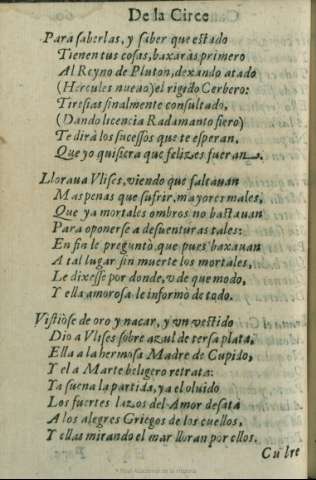 De la Circe
Para saberlas, y saber que estado
Tienen tus cosas, baxaràs primero
Al Reyno de Pluton, dexando atado
(Hercules nueuo) el rigido Cerbero:
Tiresias finalmente consultado,
(Dando licencia Radamanto fiero)
Te dirà los sucessos que te esperan,
Que yo quisiera que felizes fueran.
Lloraua Vlises, viendo que faltauan
Mas penas que sufrir, mayores males,
Que ya mortales ombros no bastauan
Para oponerse a desuenturas tales:
En fin le preguntò, que pues baxauan
A tal lugar sin muerte los mortales,
Le dixesse por donde, v de que modo,
Y ella amorosa le informò de todo.
Vistiòse de oro y nacar, y vn vestido
Dio a Vlises sobre azul de tersa plata,
Ella a la hermosa Madre de Cupido,
Y el a Marte beligero retrata:
Ya suena la partida, ya el oluido
Los fuertes lazos del Amor desata
A los alegres Griegos de los cuellos,
Y ellas mirando el mar lloran por ellos.
Cubre
Real Academia de la Historia